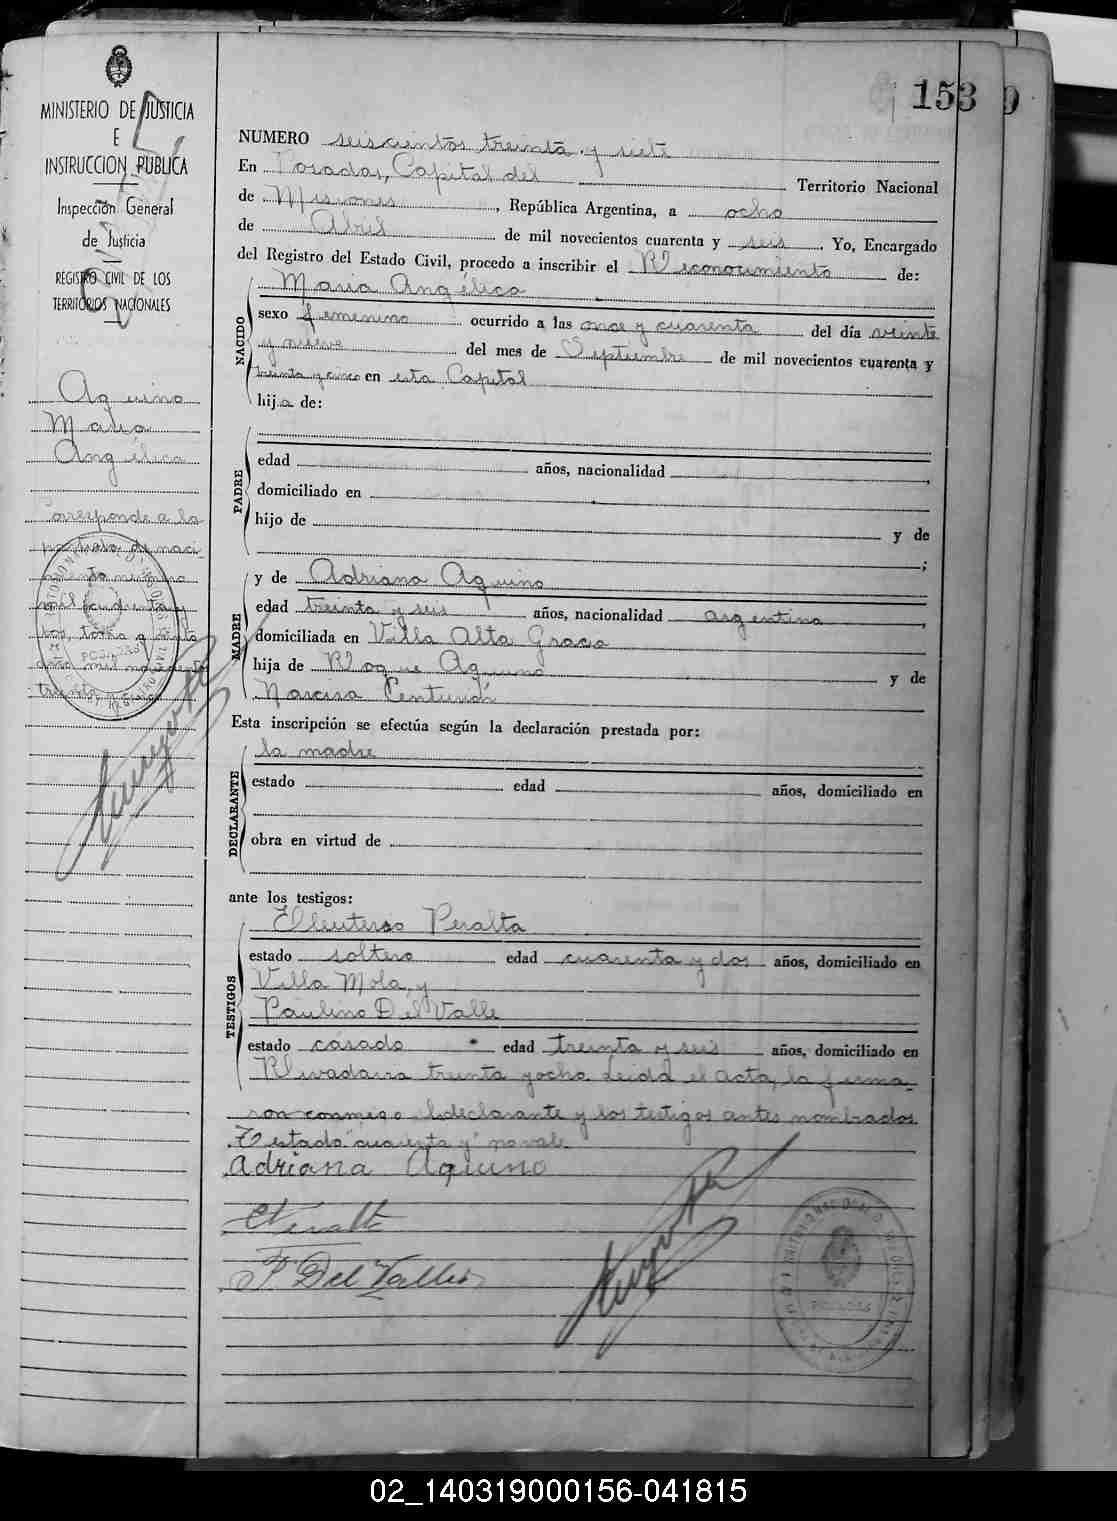 153
MINISTERIO DE JUSTICIA
E
INSTRUCCION PUBLICA
Inspección General
de Justicia
REGISTRO CIVIL DE LOS
TERRITORIOS NACIONALES
Aquino
Maria
Angélica
Corresponde a la
partida de naci-
miento número
mil
dos, tomo
año mil novecientos
treinta y
NUMERO seiscientos treinta y siete
En Posadas, Capital del Territorio Nacional
de Misiones, República Argentina, a ocho
de Abril de mil novecientos cuarenta y seis. Yo, Encargado
del Registro del Estado Civil, procedo a inscribir el Reconocimiento de:
NACIDO
Maria Angélica
sexo femenino ocurrido a las once y cuarenta del día veinte
y nueve del mes de Septiembre de mil novecientos cuarenta y
treinta y cinco en esta Capital
hija de:
PADRE
edad años, nacionalidad ,
domiciliado en
hijo de y de
;
MADRE
y de Adriana Aquino
edad treinta y seis años, nacionalidad argentina,
domiciliada en Villa Alta Gracia
hija de Roque Aquino y de
Narcisa Centurión
Esta inscripción se efectúa según la declaración prestada por:
DECLARANTE
la madre
estado edad años, domiciliado en
obra en virtud de
ante los testigos:
TESTIGOS
Elleuterio Peralta
estado soltero edad cuarenta y dos años, domiciliado en
Villa Mola, y
Paulino Del Valle
estado casado edad treinta y seis años, domiciliado en
Rivadavia treinta y ocho. Leida el acta, la firma-
ron conmigo la declarante y los testigos antes nombrados.
Testado "cuarenta y" no vale.
Adriana Aquino
E Peralta
P. Del Valle
POSADAS
02_140319000156-041815